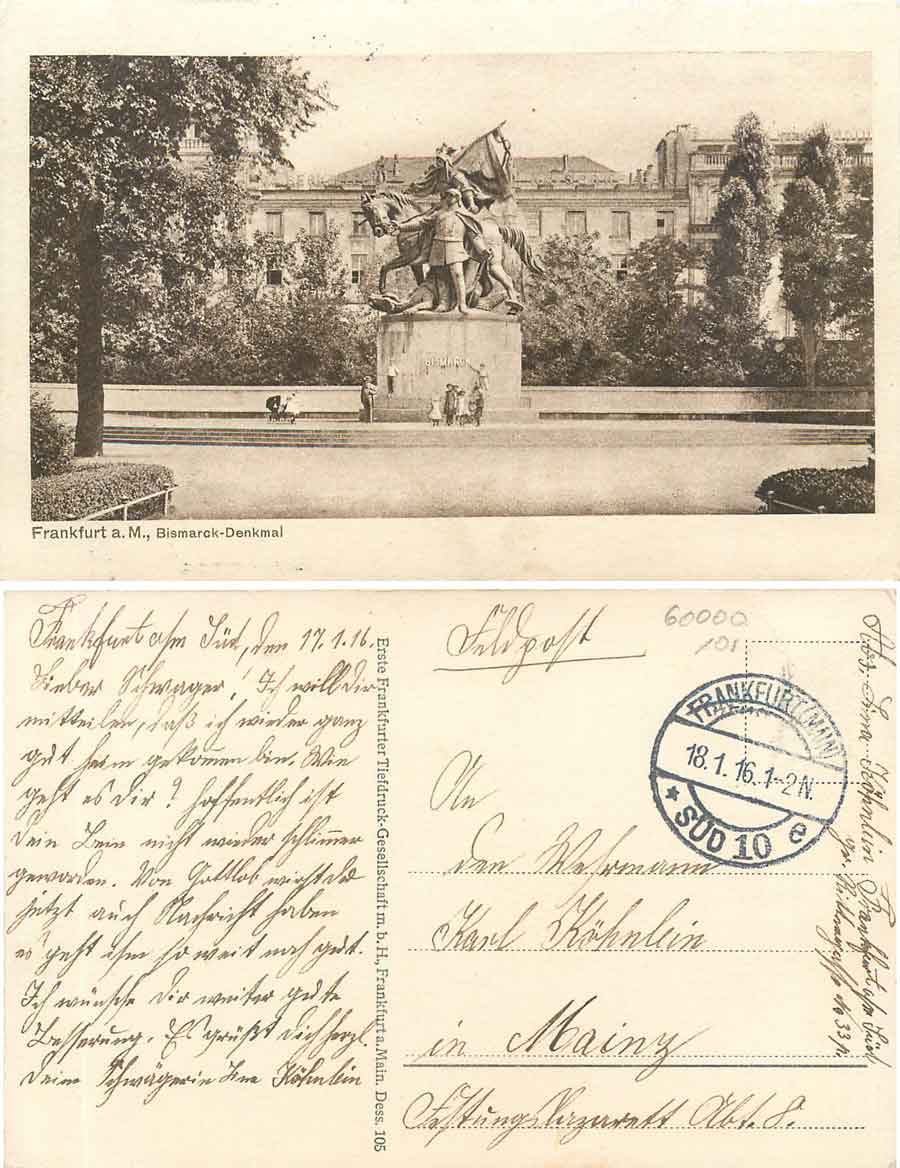 BISMARCK
Frankfurt a. M., Bismarck-Denkmal
Frankfurt a/m Süd, den 17.1.16.
Lieber Schwager! Ich will Dir
mitteilen, daß ich wieder ganz
gut heim gekommen bin. Wie
geht es dir? Hoffentlich ist
Dein Bein nicht wieder schlimmer
geworden. Von Gottlob wirst du
jetzt auch Nachricht haben
es geht ihm so weit noch gut.
Ich wünsche Dir weiter gute
Besserung. Es grüßt Dich herzl.
Deine Schwägerin Lina Köhnlein
Erste Frankfurter Tiefdruck-Gesellschaft m. b. H., Frankfurt a. Main. Dess. 105
Feldpost
60000
101
FRANKFURT (MAIN)
18.1.16.1-2N.
* SÜD 10 e
An
den Wehrmann
Karl Köhnlein
in Mainz
Festungslazarett Abt. 8.
Lina Köhnlein Frankfurt a/m Süd
No 33